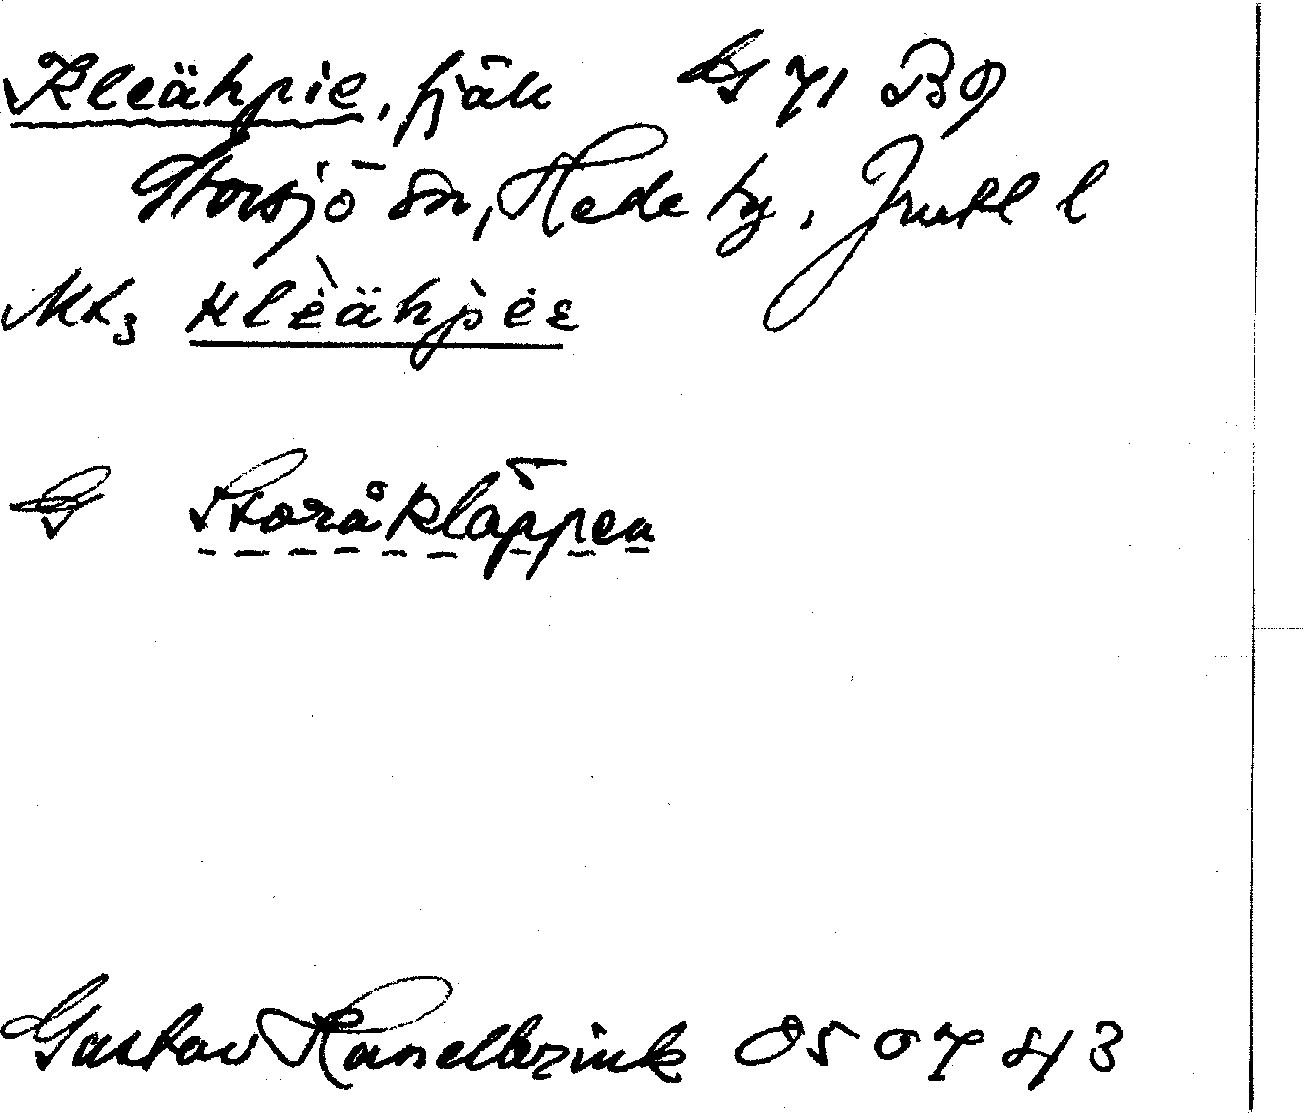 Kleähpie, fjäll
Storsjö sn, Hede tg, Jmtl l
Mt3 klèähpèe
S Storåkläppen
Gustav Hasselbrink 050743